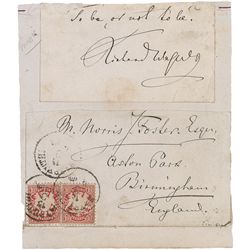 To be or not to be.
Richard Wagner
Mr. Norris J. Foster Esqre.
Aston Park
Birmingham
England.